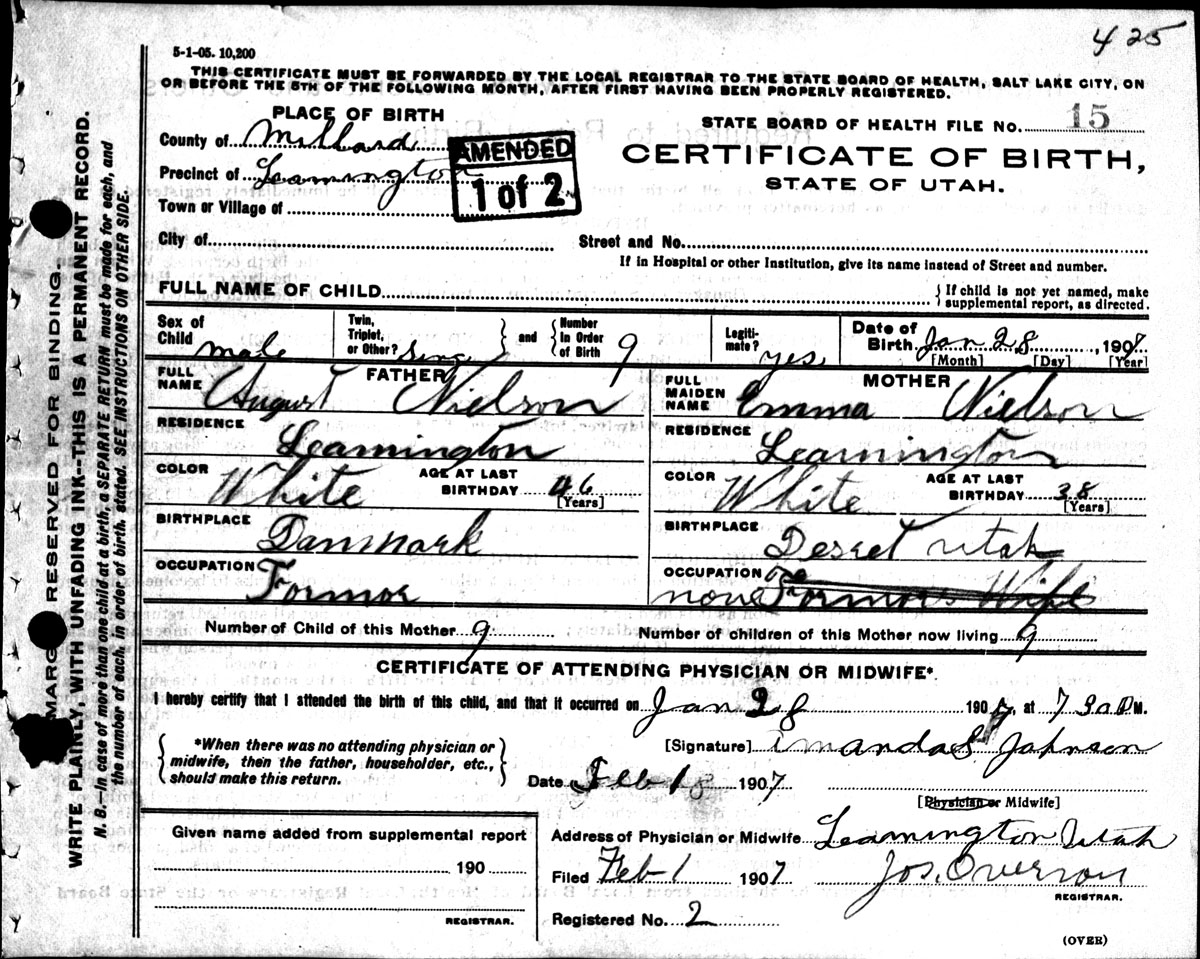 425
5-1-05. 10,200
THIS CERTIFICATE MUST BE FORWARDED BY THE LOCAL REGISTRAR TO THE STATE BOARD OF HEALTH, SALT LAKE CITY, ON
OR BEFORE THE 5TH OF THE FOLLOWING MONTH, AFTER FIRST HAVING BEEN PROPERLY REGISTERED.
PLACE OF BIRTH
County of Millard
Precinct of Leamington
Town or Village of
AMENDED
1 of 2
STATE BOARD OF HEALTH FILE NO. 15
CERTIFICATE OF BIRTH,
STATE OF UTAH.
City of Street and No.
If in Hospital or other Institution, give its name instead of Street and number.
FULL NAME OF CHILD { If child is not yet named, make
supplemental report, as directed.
Sex of Child male
Twin, Triplet, or Other? Sing } and { Number In Order of Birth 9
Legitimate? yes
Date of Birth Jan 28, 1907
[Month] [Day] [Year]
FATHER
FULL NAME August Nielson
RESIDENCE Leamington
COLOR White AGE AT LAST BIRTHDAY 46 [Years]
BIRTHPLACE Danmark
OCCUPATION Formor
MOTHER
FULL MAIDEN NAME Emma Nielson
RESIDENCE Leamington
COLOR White AGE AT LAST BIRTHDAY 38 [Years]
BIRTHPLACE Desret Utah
OCCUPATION none Formors Wife
Number of Child of this Mother 9 Number of children of this Mother now living 9
CERTIFICATE OF ATTENDING PHYSICIAN OR MIDWIFE*.
I hereby certify that I attended the birth of this child, and that it occurred on Jan 28 1907, at 730 P M.
{ *When there was no attending physician or
midwife, then the father, householder, etc.,
should make this return. }
[Signature] Amanda S Johnson
Date Feb 1 1907
[Physician or Midwife]
Given name added from supplemental report
190
REGISTRAR.
Address of Physician or Midwife Leamington Utah
Filed Feb 1 1907 Jos. Overson
REGISTRAR.
Registered No. 2
(OVER)
MARGIN RESERVED FOR BINDING.
WRITE PLAINLY, WITH UNFADING INK--THIS IS A PERMANENT RECORD.
N. B.—In case of more than one child at a birth, a SEPARATE RETURN must be made for each, and
the number of each, in order of birth, stated. SEE INSTRUCTIONS ON OTHER SIDE.